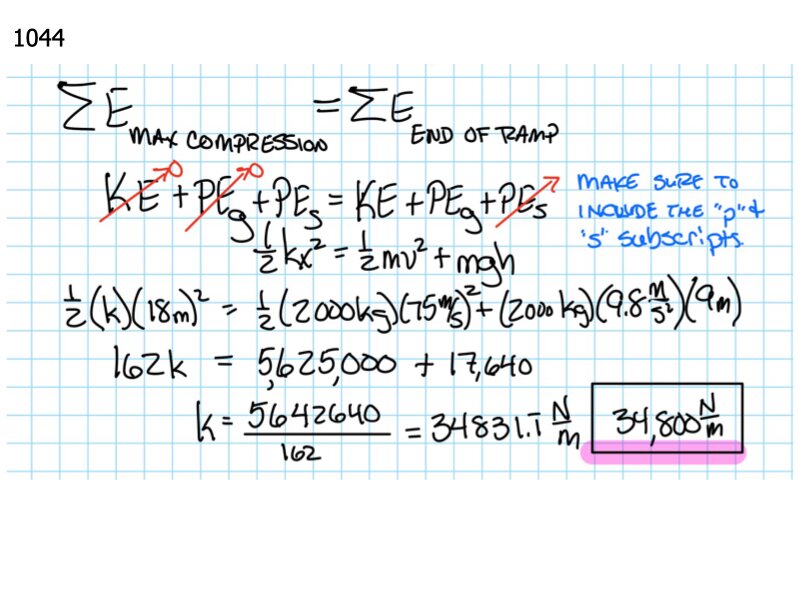 1044
ΣE MAX COMPRESSION = ΣE END OF RAMP
KE→0 + PEg→0 + PEs = KE + PEg + PEs
MAKE SURE TO
INCLUDE THE "p" &
's' subscripts
½kx² = ½mv² + mgh
½(k)(18m)² = ½(2000kg)(75m/s)² + (2000kg)(9.8 m/s²)(9m)
162k = 5,625,000 + 17,640
k = 5642640/162 = 34831.1 N/m 34,800 N/m